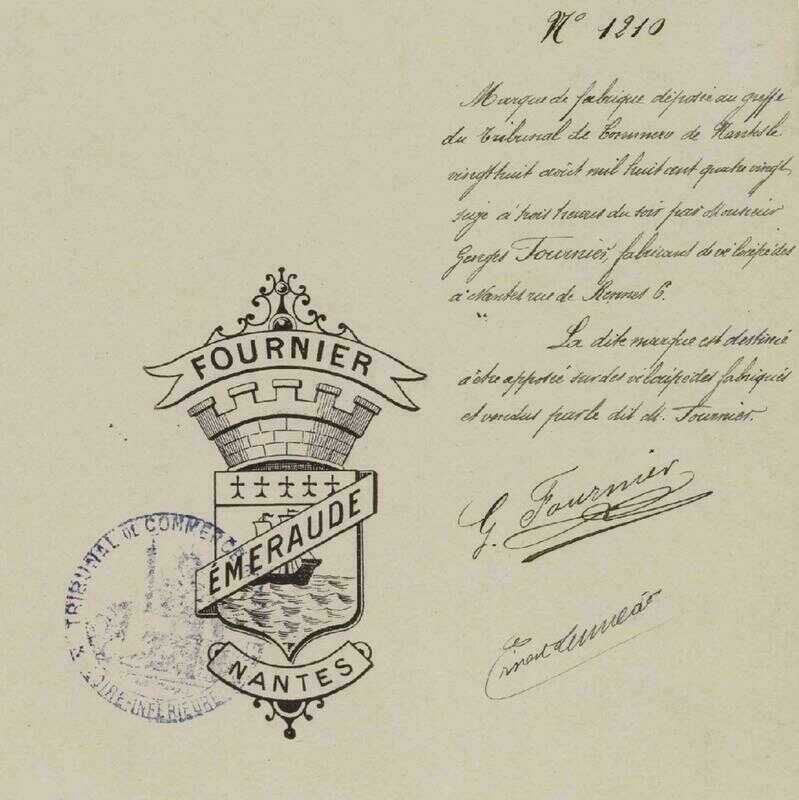 Nº 1210
Marque de fabrique déposée au greffe
du Tribunal de Commerce de Nantes le
vingt huit août mil huit cent quatre vingt
seize à trois heures du soir par Monsieur
Georges Fournier, fabricant de vélocipèdes
à Nantes rue de Rennes 6.
La dite marque est destinée
à être apposée sur des vélocipèdes fabriqués
et vendus par le dit M. Fournier.
G. Fournier
FOURNIER
ÉMERAUDE
NANTES
TRIBUNAL DE COMMERCE
LOIRE-INFÉRIEURE